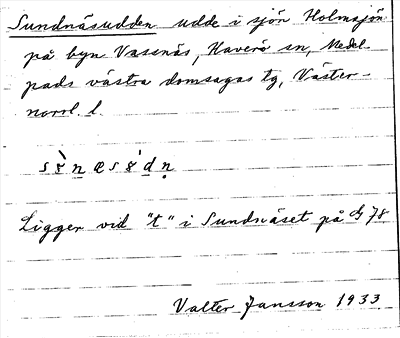 Sundnäsudden udde i sjön Holmsjön
på byn Vasenäs, Haverö sn, Medel-
pads västra domsagas tg, Väster-
norrl. l.
Ligger vid "t" i Sundnäset på G 78
Valter Jansson 1933